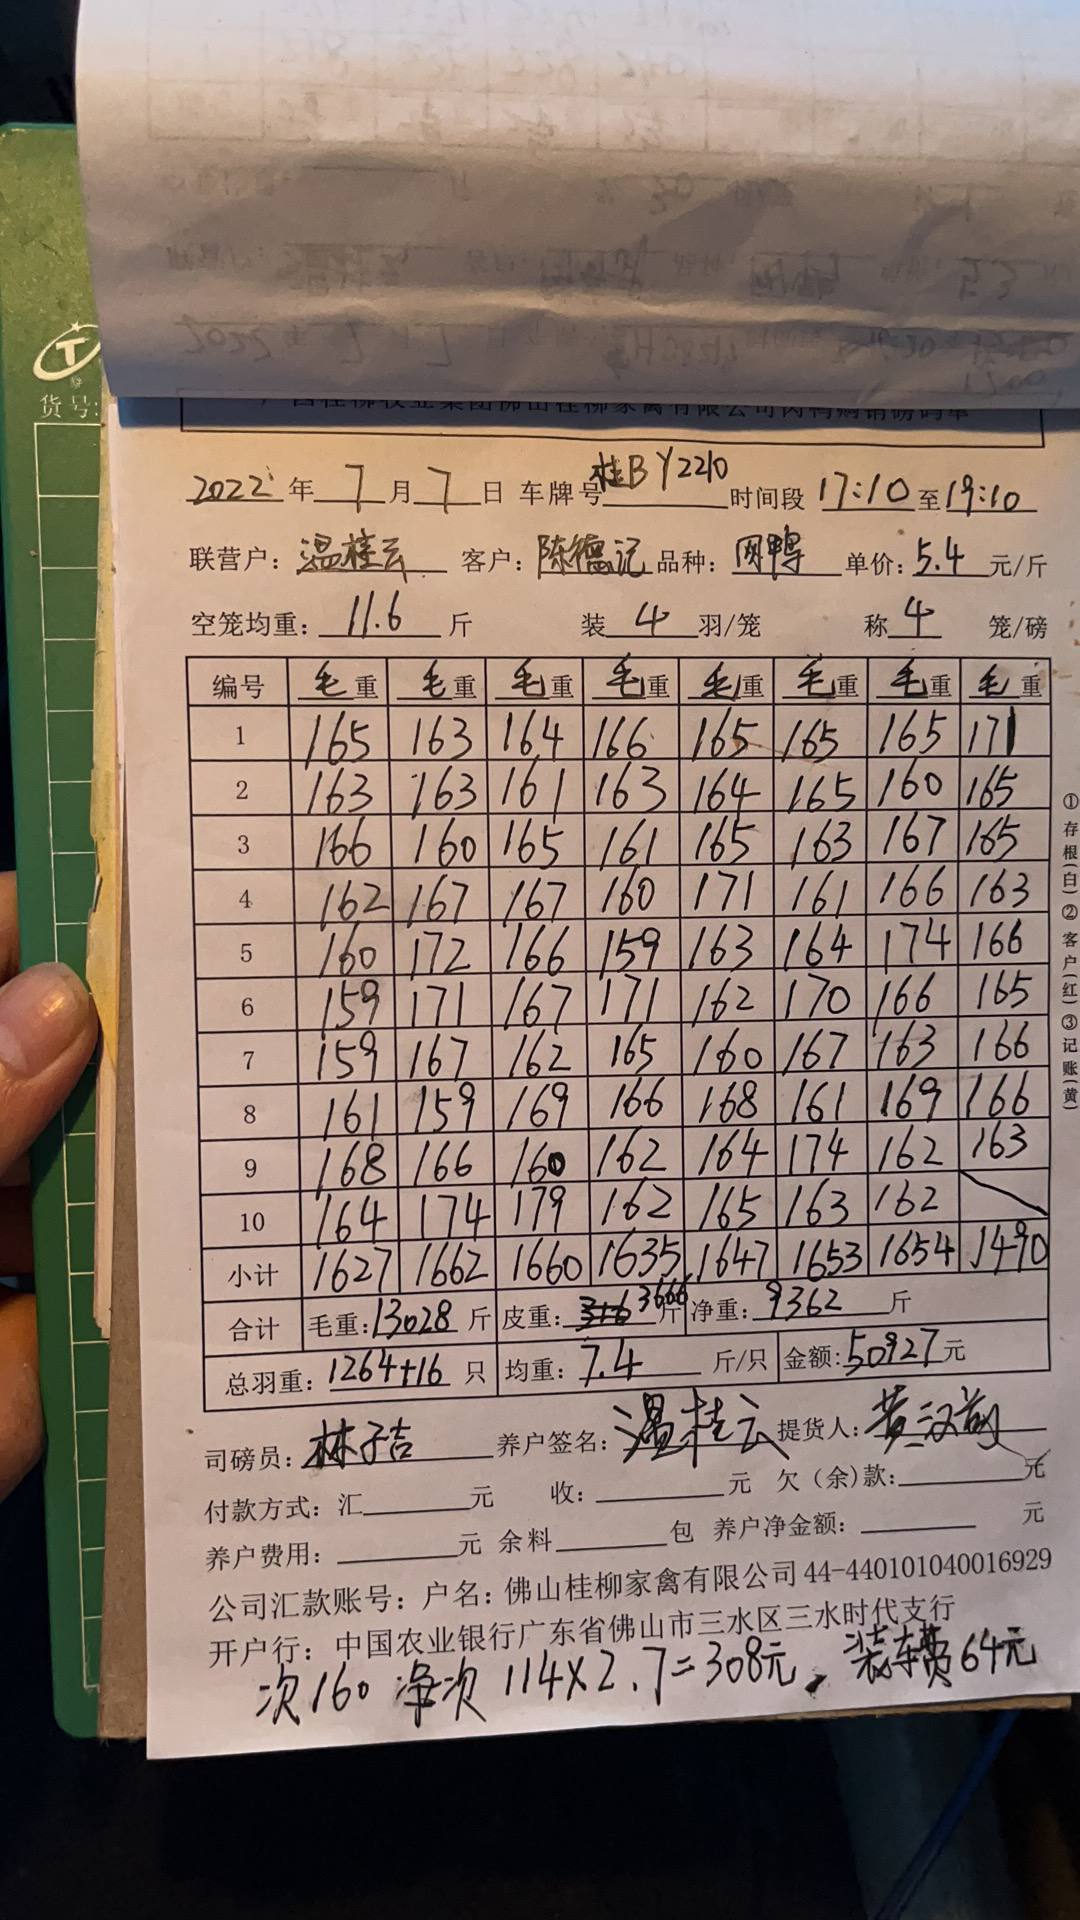 T
货号:
广西桂柳牧业集团佛山桂柳家禽有限公司肉鸭购销磅码单
2022年7月7日 车牌号桂BY2210 时间段17:10至19:10
联营户:温桂云 客户:陈德记 品种:肉鸭 单价:5.4元/斤
空笼均重:11.6斤 装4羽/笼 称4笼/磅
编号 毛重 毛重 毛重 毛重 毛重 毛重 毛重 毛重
1 165 163 164 166 165 165 165 171
2 163 163 161 163 164 165 160 165
3 166 160 165 161 165 163 167 165
4 162 167 167 160 171 161 166 163
5 160 172 166 159 163 164 174 166
6 159 171 167 171 162 170 166 165
7 159 167 162 165 160 167 163 166
8 161 159 169 166 168 161 169 166
9 168 166 160 162 164 174 162 163
10 164 174 179 162 165 163 162
小计 1627 1662 1660 1635 1647 1653 1654 1490
合计 毛重:13028斤 皮重:3666斤 净重:9362斤
总羽重:1264+16只 均重:7.4斤/只 金额:50927元
司磅员:林子吉 养户签名:温桂云 提货人:黄汉
付款方式:汇 元 收: 元 欠(余)款: 元
养户费用: 元 余料 包 养户净金额: 元
公司汇款账号:户名:佛山桂柳家禽有限公司44-440101040016929
开户行:中国农业银行广东省佛山市三水区三水时代支行
次160 净次 114×2.7=308元,装车费64元
①存根(白)②客户(红)③记账(黄)